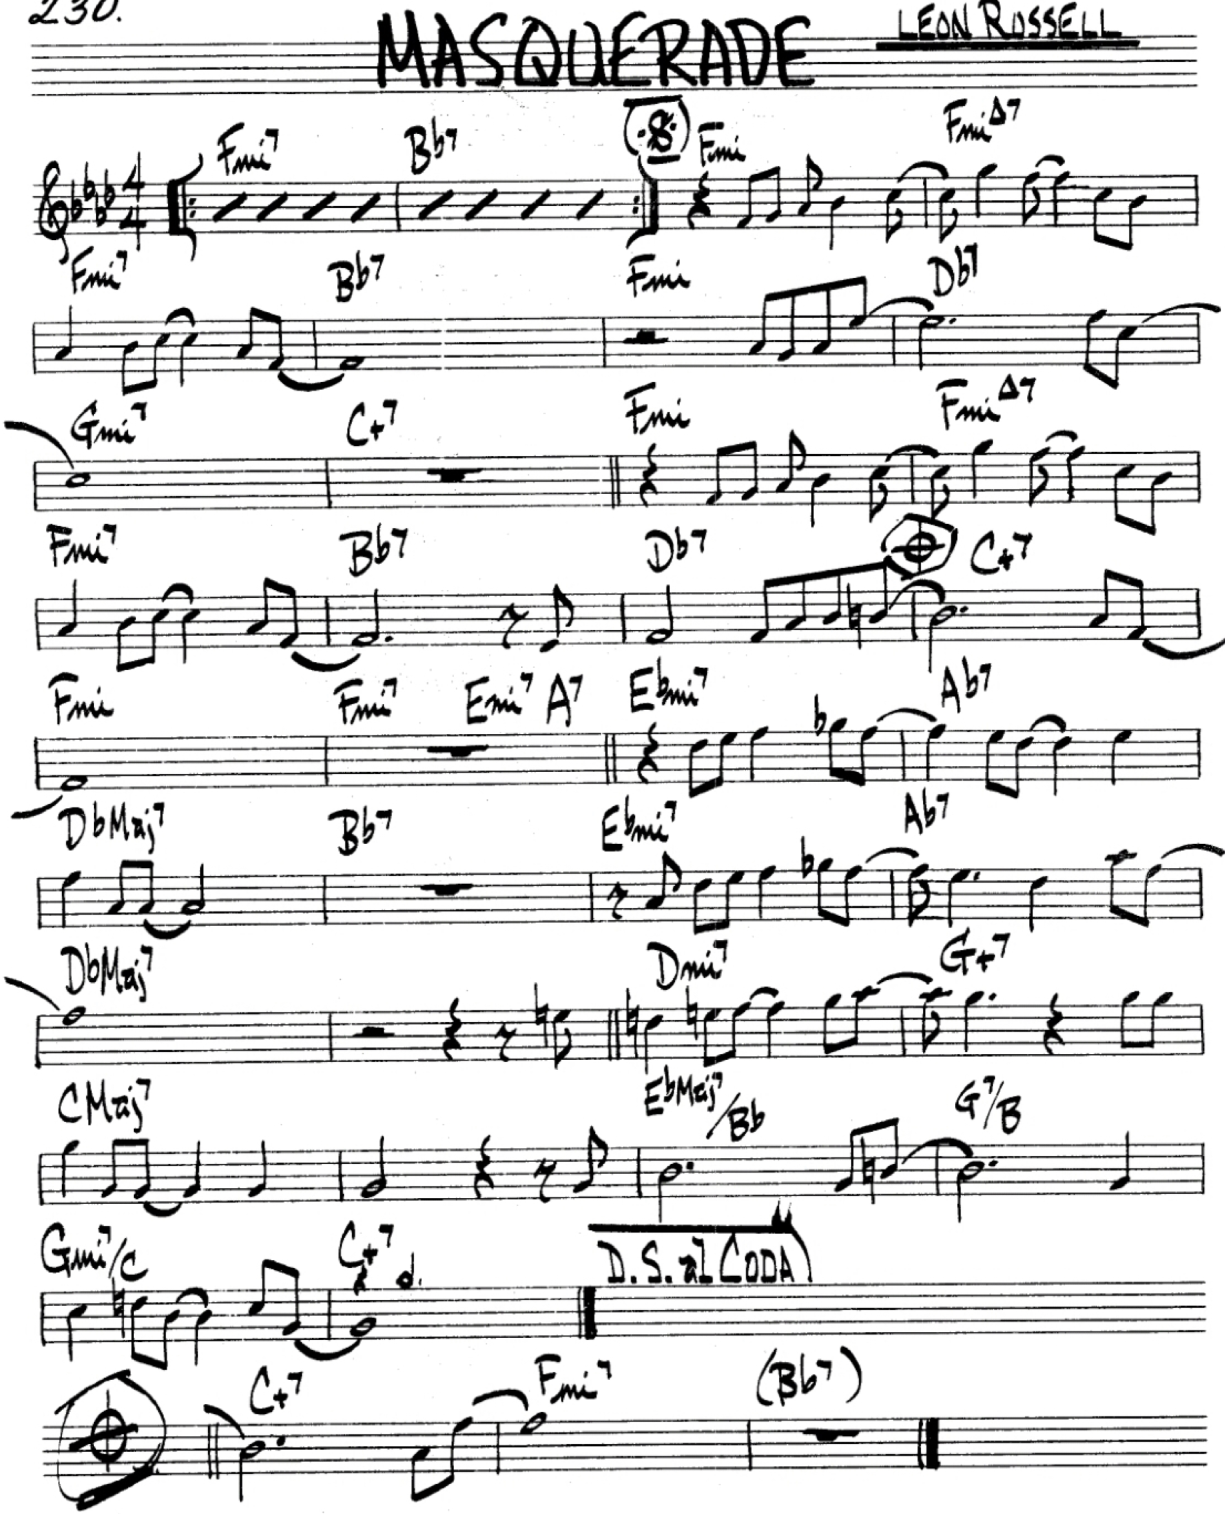 230.
MASQUERADE LEON RUSSELL
Fmi7 Bb7 Fmi FmiΔ7
4
4
Fmi7 Bb7 Fmi Db7
Gmi7 C+7 Fmi FmiΔ7
Fmi7 Bb7 Db7 C+7
Fmi Fmi7 Emi7 A7 Ebmi7 Ab7
DbMaj7 Bb7 Ebmi7 Ab7
DbMaj7 Dmi7 G+7
CMaj7 EbMaj7/Bb G7/B
Gmi7/C C+7 D.S. al CODA
C+7 Fmi7 (Bb7)